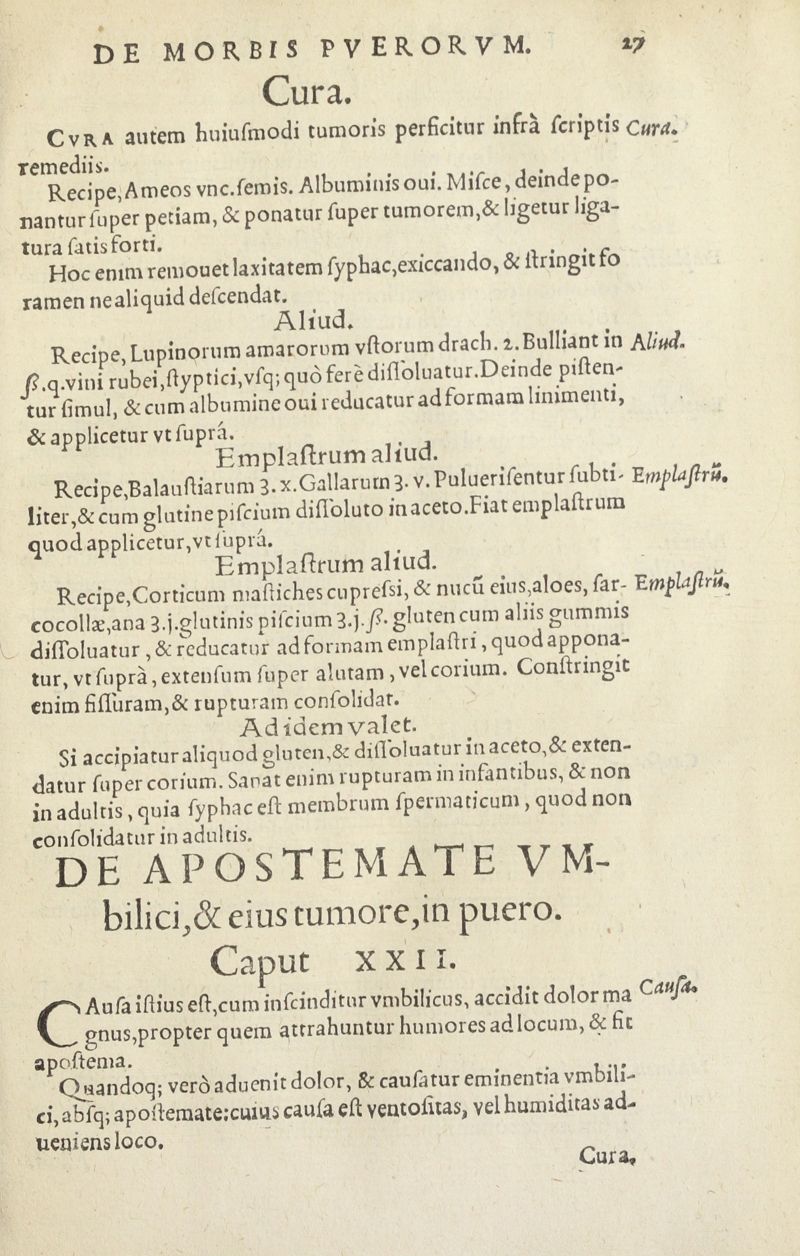 DE MORBIS PVERORVM. 27
Cura.
CVRA autem huiuſmodi tumoris perficitur infrà ſcriptis Cura.
remediis.
Recipe, Ameos vnc.ſemis. Albuminis oui. Miſce, deinde po-
nantur ſuper petiam, & ponatur ſuper tumorem, & ligetur liga-
tura ſatis forti.
Hoc enim remouet laxitatem ſyphac, exiccando, & ſtringit fo
ramen ne aliquid deſcendat.
Aliud.
Recipe, Lupinorum amarorum vſtorum drach. 2. Bulliant in Aliud.
ſſ.q.vini rubei, ſtyptici, vſq; quò ferè diſſoluatur. Deinde piſten-
tur ſimul, & cum albumine oui reducatur ad formam linimenti,
& applicetur vt ſuprá.
Emplaſtrum aliud.
Recipe, Balauſtiarum ʒ.x. Gallarum ʒ.v. Pulueriſentur ſubti- Emplaſtrū.
liter, & cum glutine piſcium diſſoluto in aceto. Fiat emplaſtrum
quod applicetur, vt ſuprá.
Emplaſtrum aliud.
Recipe, Corticum maſtiches cupreſsi, & nucū eius, aloes, ſar- Emplaſtrū.
cocollæ, ana ʒ.j. glutinis piſcium ʒ.j.ſſ. gluten cum aliis gummis
diſſoluatur, & reducatur ad formam emplaſtri, quod appona-
tur, vt ſuprà, extenſum ſuper alutam, vel corium. Conſtringit
enim fiſſuram, & rupturam conſolidat.
Ad idem valet.
Si accipiatur aliquod gluten, & diſſoluatur in aceto, & exten-
datur ſuper corium. Sanat enim rupturam in infantibus, & non
in adultis, quia ſyphac eſt membrum ſpermaticum, quod non
conſolidatur in adultis.
DE APOSTEMATE VM-
bilici, & eius tumore, in puero.
Caput XXII.
CAuſa iſtius eſt, cum inſcinditur vmbilicus, accidit dolor ma Cauſa.
gnus, propter quem attrahuntur humores ad locum, & fit
apoſtema.
Quandoq; verò aduenit dolor, & cauſatur eminentia vmbili-
ci, abſq; apoſtemate: cuius cauſa eſt ventoſitas, vel humiditas ad-
ueniens loco.
Cura,